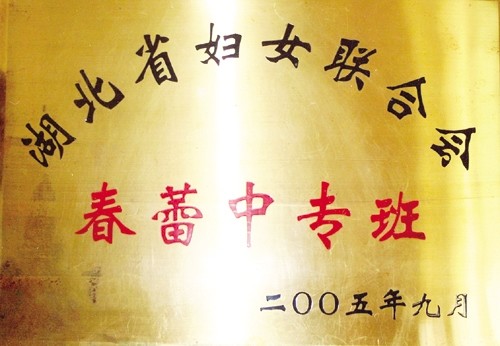 湖北省妇女联合会
春蕾中专班
二〇〇五年九月